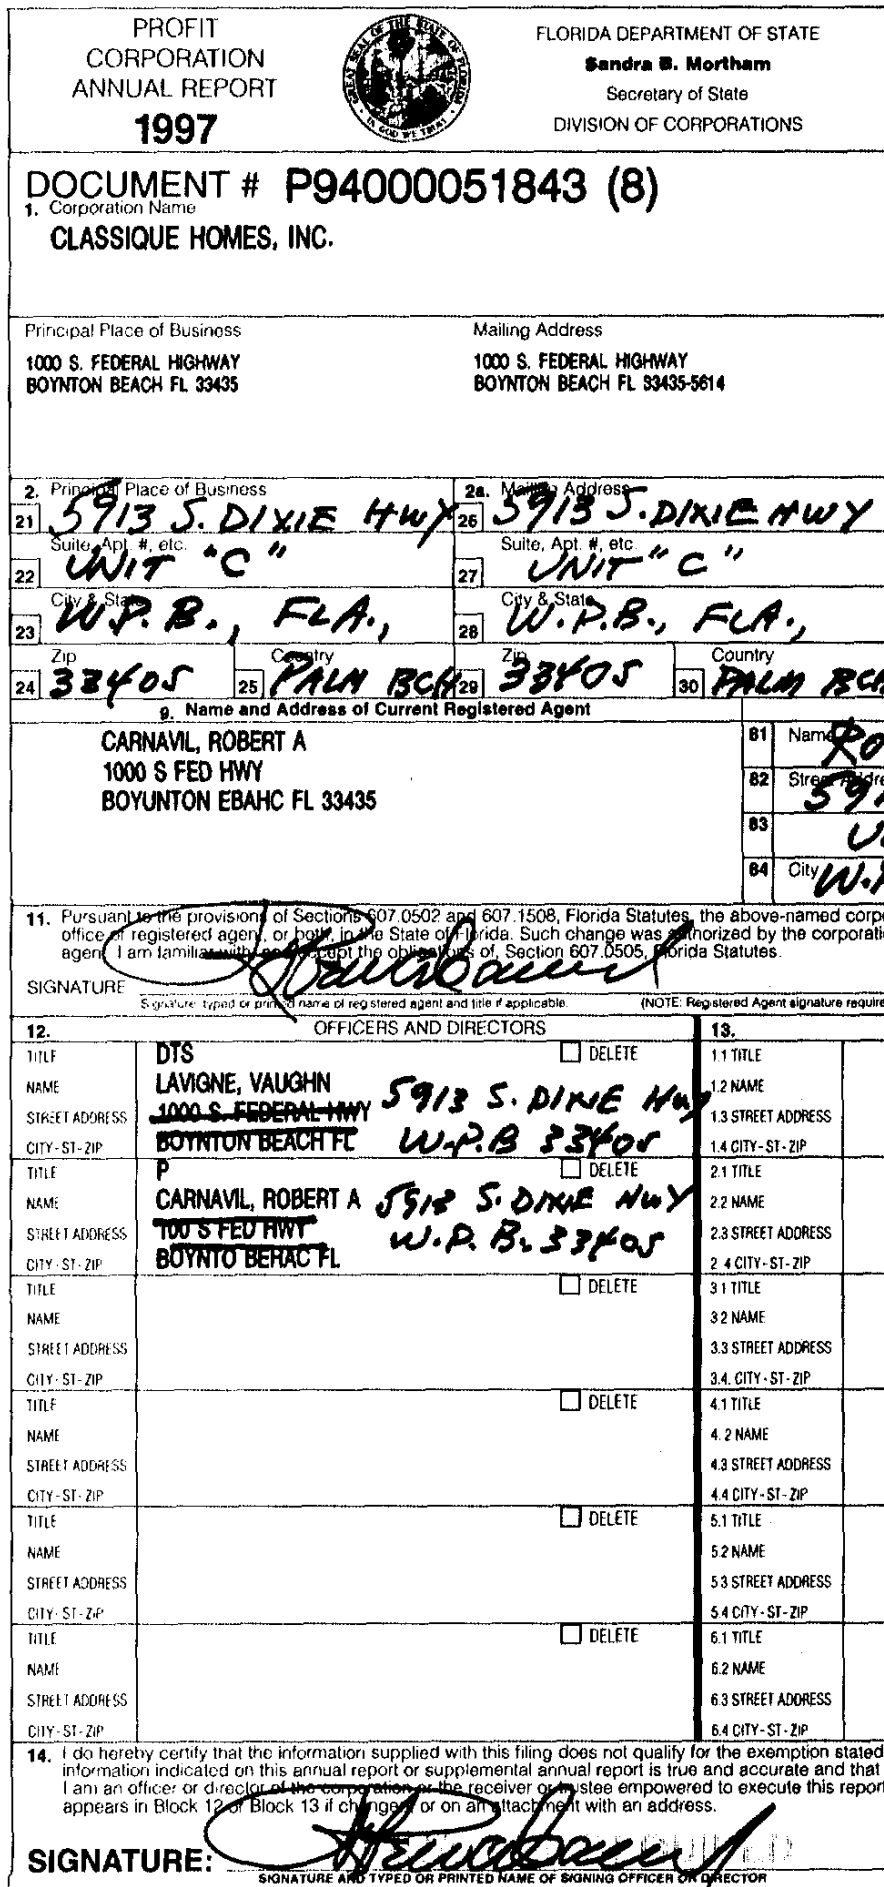 PROFIT
CORPORATION
ANNUAL REPORT
1997
GREAT SEAL OF THE STATE OF FLORIDA
IN GOD WE TRUST
FLORIDA DEPARTMENT OF STATE
Sandra B. Mortham
Secretary of State
DIVISION OF CORPORATIONS
DOCUMENT # P94000051843 (8)
1. Corporation Name
CLASSIQUE HOMES, INC.
Principal Place of Business
1000 S. FEDERAL HIGHWAY
BOYNTON BEACH FL 33435
Mailing Address
1000 S. FEDERAL HIGHWAY
BOYNTON BEACH FL 33435-5614
2. Principal Place of Business
21 5913 S. DIXIE HWY
Suite, Apt. #, etc.
22 UNIT "C"
City & State
23 W.P.B., FLA.,
Zip
24 33405
Country
25 PALM BCH
2a. Mailing Address
26 5913 S. DIXIE HWY
Suite, Apt. #, etc.
27 UNIT "C"
City & State
28 W.P.B., FLA.,
Zip
29 33405
Country
30 PALM BCH
9. Name and Address of Current Registered Agent
CARNAVIL, ROBERT A
1000 S FED HWY
BOYUNTON EBAHC FL 33435
81 Name Ro
82 Street Addre 591
83 U
84 City W.P
11. Pursuant to the provisions of Sections 607.0502 and 607.1508, Florida Statutes, the above-named corpo
office or registered agent, or both, in the State of Florida. Such change was authorized by the corporati
agent. I am familiar with, and accept the obligations of, Section 607.0505, Florida Statutes.
SIGNATURE
Signature, typed or printed name of registered agent and title if applicable. (NOTE: Registered Agent signature require
12. OFFICERS AND DIRECTORS 13.
TITLE DTS DELETE 1.1 TITLE
NAME LAVIGNE, VAUGHN 5913 S. DIXIE Hwy 1.2 NAME
STREET ADDRESS 1000 S. FEDERAL HWY 1.3 STREET ADDRESS
CITY-ST-ZIP BOYNTON BEACH FL W.P.B 33405 1.4 CITY-ST-ZIP
TITLE P DELETE 2.1 TITLE
NAME CARNAVIL, ROBERT A 5913 S. DIXIE HWY 2.2 NAME
STREET ADDRESS 100 S FED HWY W.P.B. 33405 2.3 STREET ADDRESS
CITY-ST-ZIP BOYNTO BEHAC FL 2 4 CITY-ST-ZIP
TITLE DELETE 3 1 TITLE
NAME 3 2 NAME
STREET ADDRESS 3.3 STREET ADDRESS
CITY-ST-ZIP 3.4. CITY-ST-ZIP
TITLE DELETE 4.1 TITLE
NAME 4. 2 NAME
STREET ADDRESS 4.3 STREET ADDRESS
CITY-ST-ZIP 4.4 CITY-ST-ZIP
TITLE DELETE 5.1 TITLE
NAME 5.2 NAME
STREET ADDRESS 5 3 STREET ADDRESS
CITY-ST-ZIP 5.4 CITY-ST-ZIP
TITLE DELETE 6.1 TITLE
NAME 6.2 NAME
STREET ADDRESS 6.3 STREET ADDRESS
CITY-ST-ZIP 6.4 CITY-ST-ZIP
14. I do hereby certify that the information supplied with this filing does not qualify for the exemption stated
information indicated on this annual report or supplemental annual report is true and accurate and that
I am an officer or director of the corporation or the receiver or trustee empowered to execute this report
appears in Block 12 or Block 13 if changed, or on an attachment with an address.
SIGNATURE:
SIGNATURE AND TYPED OR PRINTED NAME OF SIGNING OFFICER OR DIRECTOR